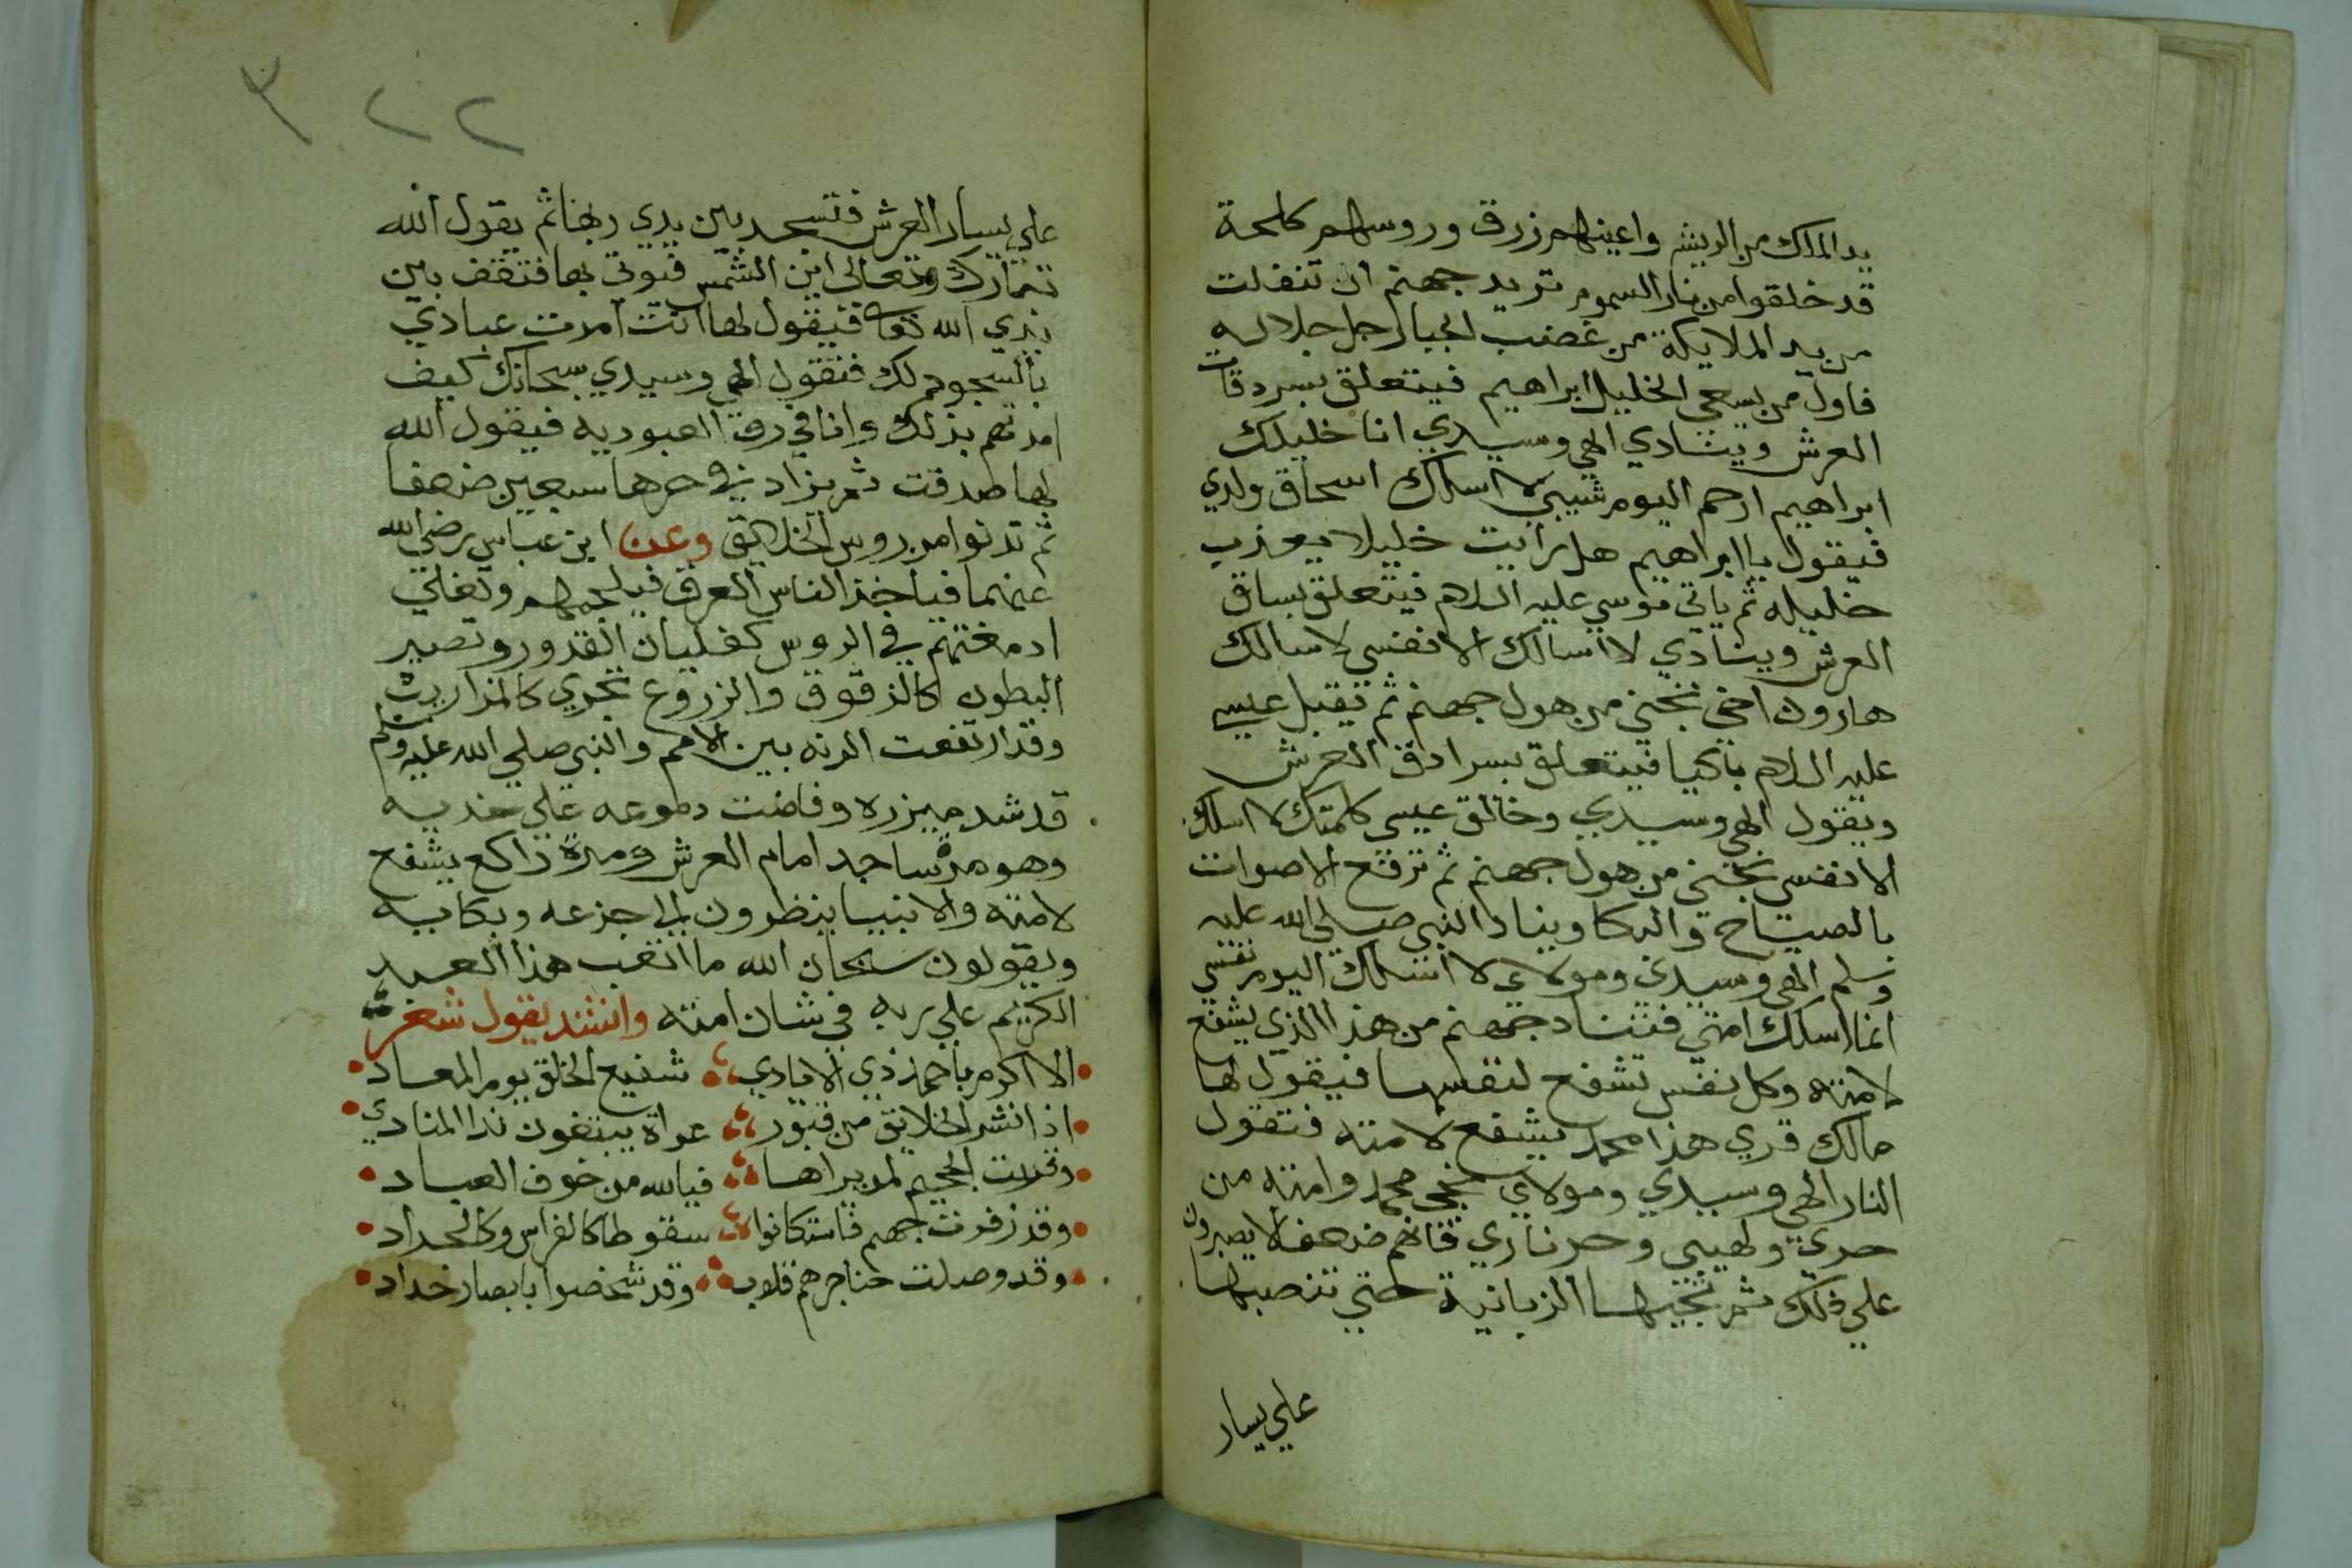 يد الملك من الريش واعينهم زرق وروسهم كالحة
قد خلقوا من نار السموم تريد جهنم ان تنفلت
من يد الملايكة من غضب الجبار جل جلاله
فاول من يسعي الخليل ابراهيم فيتعلق بسردقات
العرش وينادي الهي وسيدي انا خليلك
ابراهيم ارحم اليوم شيبتي لا اسلك اسحاق ولدي
فيقول يا ابراهيم هل رايت خليلا يعذب
خليله ثم ياتي موسي عليه السلام فيتعلق بساق
العرش وينادي لا اسالك الا نفسي لا سالك
هارون اخي نجني من هول جهنم ثم يقبل عيسي
عليه السلام باكيا فيتعلق بسرادق العرش
ويقول الهي وسيدي وخالق عيسي كلمتك لا اسلك
الا نفسي نجني من هول جهنم ثم ترتفع الاصوات
بالصياح والبكا وينادا النبي صلي الله عليه
وسلم الهي وسيدي ومولاي لا اسلك اليوم نفسي
انما اسلك امتي فتناد جهنم من هذا الذي يشفع
لامته وكل نفس تشفع لنفسها فيقول لها
مالك قري هذا محمد يشفع لامته فتقول
النار الهي وسيدي ومولاي نجي محمد وامته من
حري ولهيبي وحر ناري فانهم ضعفا لا يصبرون
علي ذلك ثم تجيها الزبانية حتي تنصبها
علي يسار
٢٢ ٣
علي يسار العرش فتسجد بين يدي ربها ثم يقول الله
تبارك وتعالي اين الشمس فيوتي بها فتقف بين
يدي الله تعا فيقول لها انت امرت عبادي
بالسجود لك فتقول الهي وسيدي سبحانك كيف
امرتهم بذلك وانا في رق العبوديه فيقول الله
لها صدقت ثم يزاد في حرها سبعين ضعفا
ثم تدنوا من روس الخلايق وعن ابن عباس رضي الله
عنهما فياخذ الناس العرق فيلجمهم وتغلي
ادمغتهم في الروس كغليان القدور وتصير
البطون كالزقوق والزروع تجري كالمزاريب
وقد ارتفعت الرنه بين الامم والنبي صلي الله عليه وسلم
قد شد ميزره وفاضت دموعه علي خديه
وهو مرة ساجد امام العرش ومرة راكع يشفع
لامته والانبيا ينظرون الي جزعه وبكايه
ويقولون سبحان الله ما اتعب هذا العبد
الكريم علي ربه في شان امته وانشد يقول شعر
الا اكرم باحمد ذي الايادي شفيع الخلق يوم المعاد
اذا نشر الخلايق من قبور عراة يبتغون ندا المنادي
وقربت الجحيم لمن يراها فيالله من خوف العباد
وقد زفرت جهنم فاستكانوا سقوطا كالفراش وكالجراد
وقد وصلت حناجرهم قلوب وقد شخصوا بابصار حداد